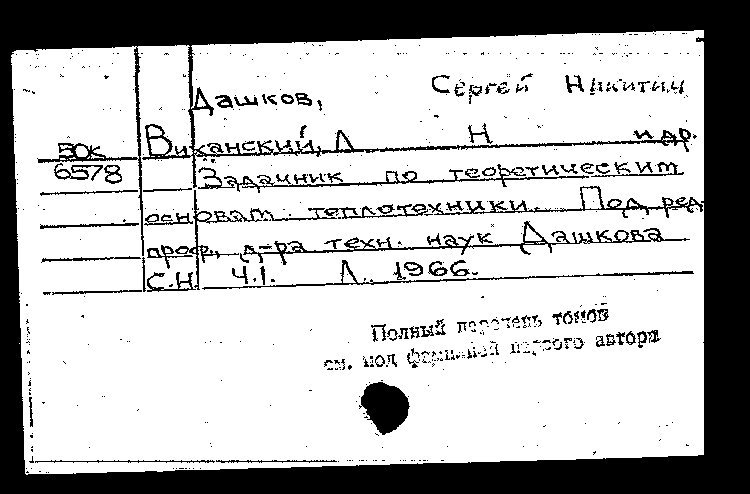 Дашков, Сергей Никитич
50к Виханский, Л Н и др.
6578 Задачник по теоретическим
основам теплотехники. Под ред.
проф., д-ра техн. наук Дашкова
С.Н. Ч.1. Л. 1966.
Полный перечень томов
см. под фамилией первого автора